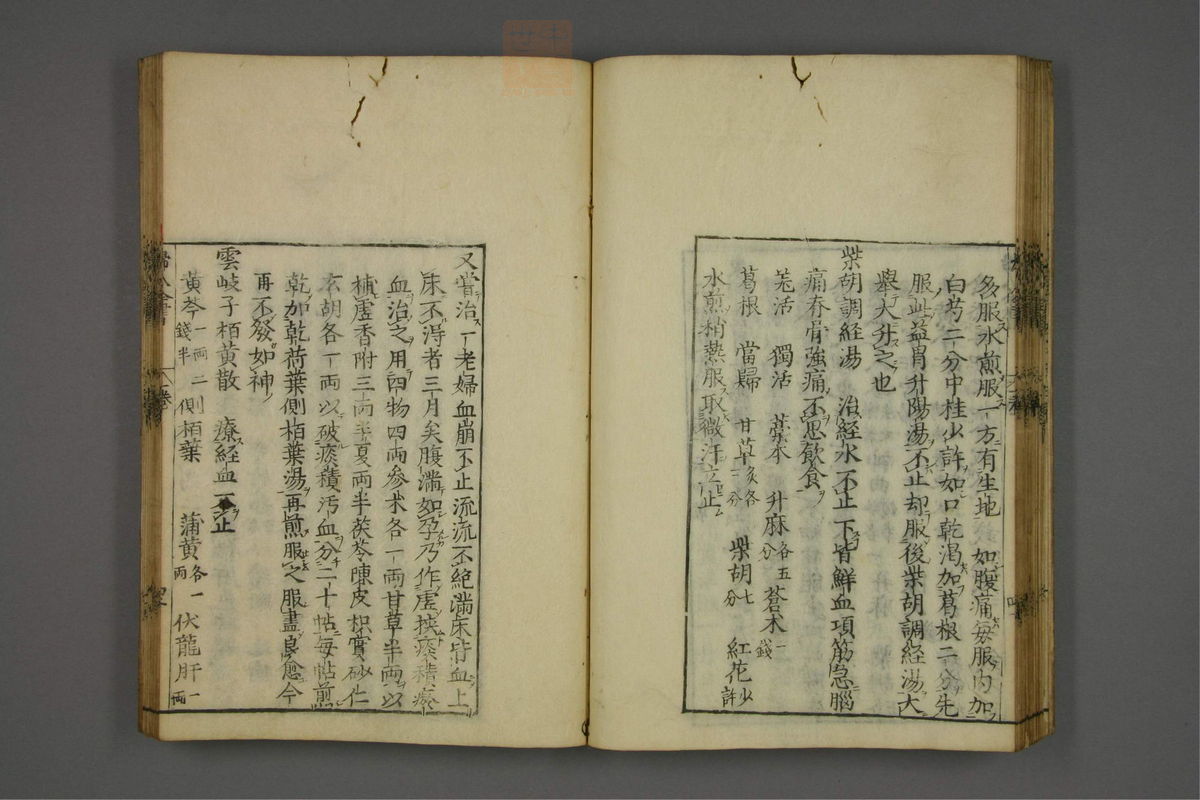 多服水煎服一方有生地 如腹痛每服内加
白芍二分中桂少許如口乾渴加葛根二分先
服此益胃升陽湯不止却服後柴胡調經湯大
舉大升之也
柴胡調經湯 治經水不止下皆鮮血項筋急腦
痛脊骨強痛不思飲食
羗活 獨活 藁本 升麻各五分 蒼朮一錢
葛根 當歸 甘草炙各二分 柴胡七分 紅花少許
水煎稍熱服取微汗立止
又嘗治一老婦血崩不止流流不絶滿床皆血上
床不得者三月矣腹滿如孕乃作虚挾痰積瘀
血治之用四物四兩參朮各一兩甘草半兩以
補虚香附三兩半夏兩半茯苓陳皮枳實砂仁
玄胡各一兩以破痰積汚血分二十帖每帖煎
乾加乾荷葉側栢葉湯再煎服之服盡良愈今
再不發如神
雲岐子栢黄散 療經血不止
黄芩一兩二錢半 側栢葉 蒲黄各一兩 伏龍肝一兩